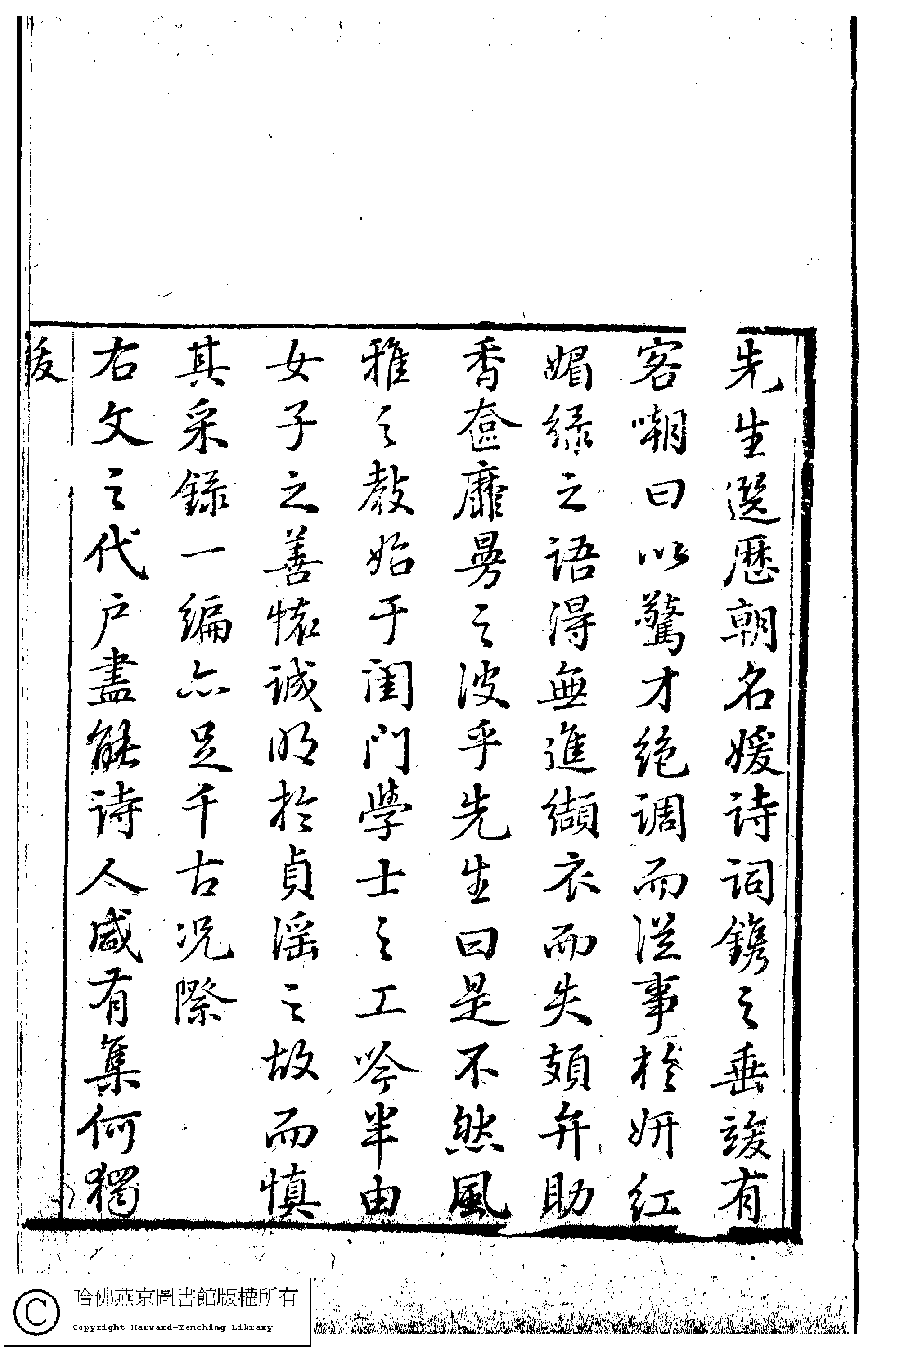 先生選歷朝名媛詩詞鐫之垂竣有
客嘲曰以驚才絕調而從事於妍紅
媚綠之語得無進纈衣而失頍弁助
香奩靡曼之波乎先生曰是不然風
雅之教始于閨門學士之工吟半由
女子之善懷誠明於貞淫之故而慎
其采錄一編亦足千古況際
右文之代户盡能詩人咸有集何獨
哈佛燕京圖書館版權所有
Copyright Harvard-Yenching Library